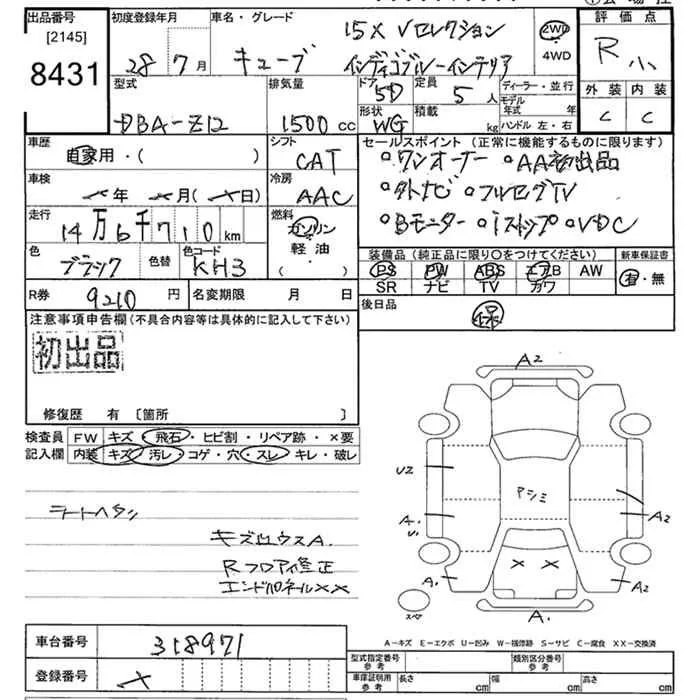 出品番号
[2145]
8431
初度登録年月
28年 7月
車名・グレード
15X Vセレクション
キューブ インディゴブルーインテリア
2WD
・
4WD
評価点
R
外装 内装
C C
型式
DBA-Z12
排気量
1500cc
ドア 5D
形状 WG
定員 5人
積載 kg
ディーラー・並行
モデル
年式 年
ハンドル 左・右
車歴
自家用・( )
シフト
CAT
車検
年 月( 日)
冷房
AAC
走行
14万6千710km
燃料
ガソリン
軽油
・( )
色
ブラック
色替
色コード
KH3
R券 9210円
名変期限 月 日
セールスポイント (正常に機能するものに限ります)
○ワンオーナー ○AA初出品
○外ナビ ○フルセグTV
○Bモニター ○iストップ ○VDC
装備品 (純正品に限り○をつけてください)
PS PW ABS エアB AW
SR ナビ TV カワ
新車保証書
有・無
後日品
保
注意事項申告欄(不具合内容等は具体的に記入して下さい)
初出品
修復歴 有 〔箇所 〕
検査員
記入欄
FW キズ・飛石・ヒビ割・リペア跡・×要
内装 キズ・汚レ・コゲ・穴・スレ・キレ・破レ
シートヘタシ
キズ ウスA.
Rフロア修正
エンドパネル××
A2
U2
A.
U.
A.
Pシミ
A2
A2
× ×
A.
スペア
A-キズ E-エクボ U-凹み W-補修跡 S-サビ C-腐食 XX-交換済
車台番号 318971
登録番号 ×
型式指定番号
参考
類別区分番号
参考
車庫証明用
参考
長さ cm 幅 cm 高さ cm